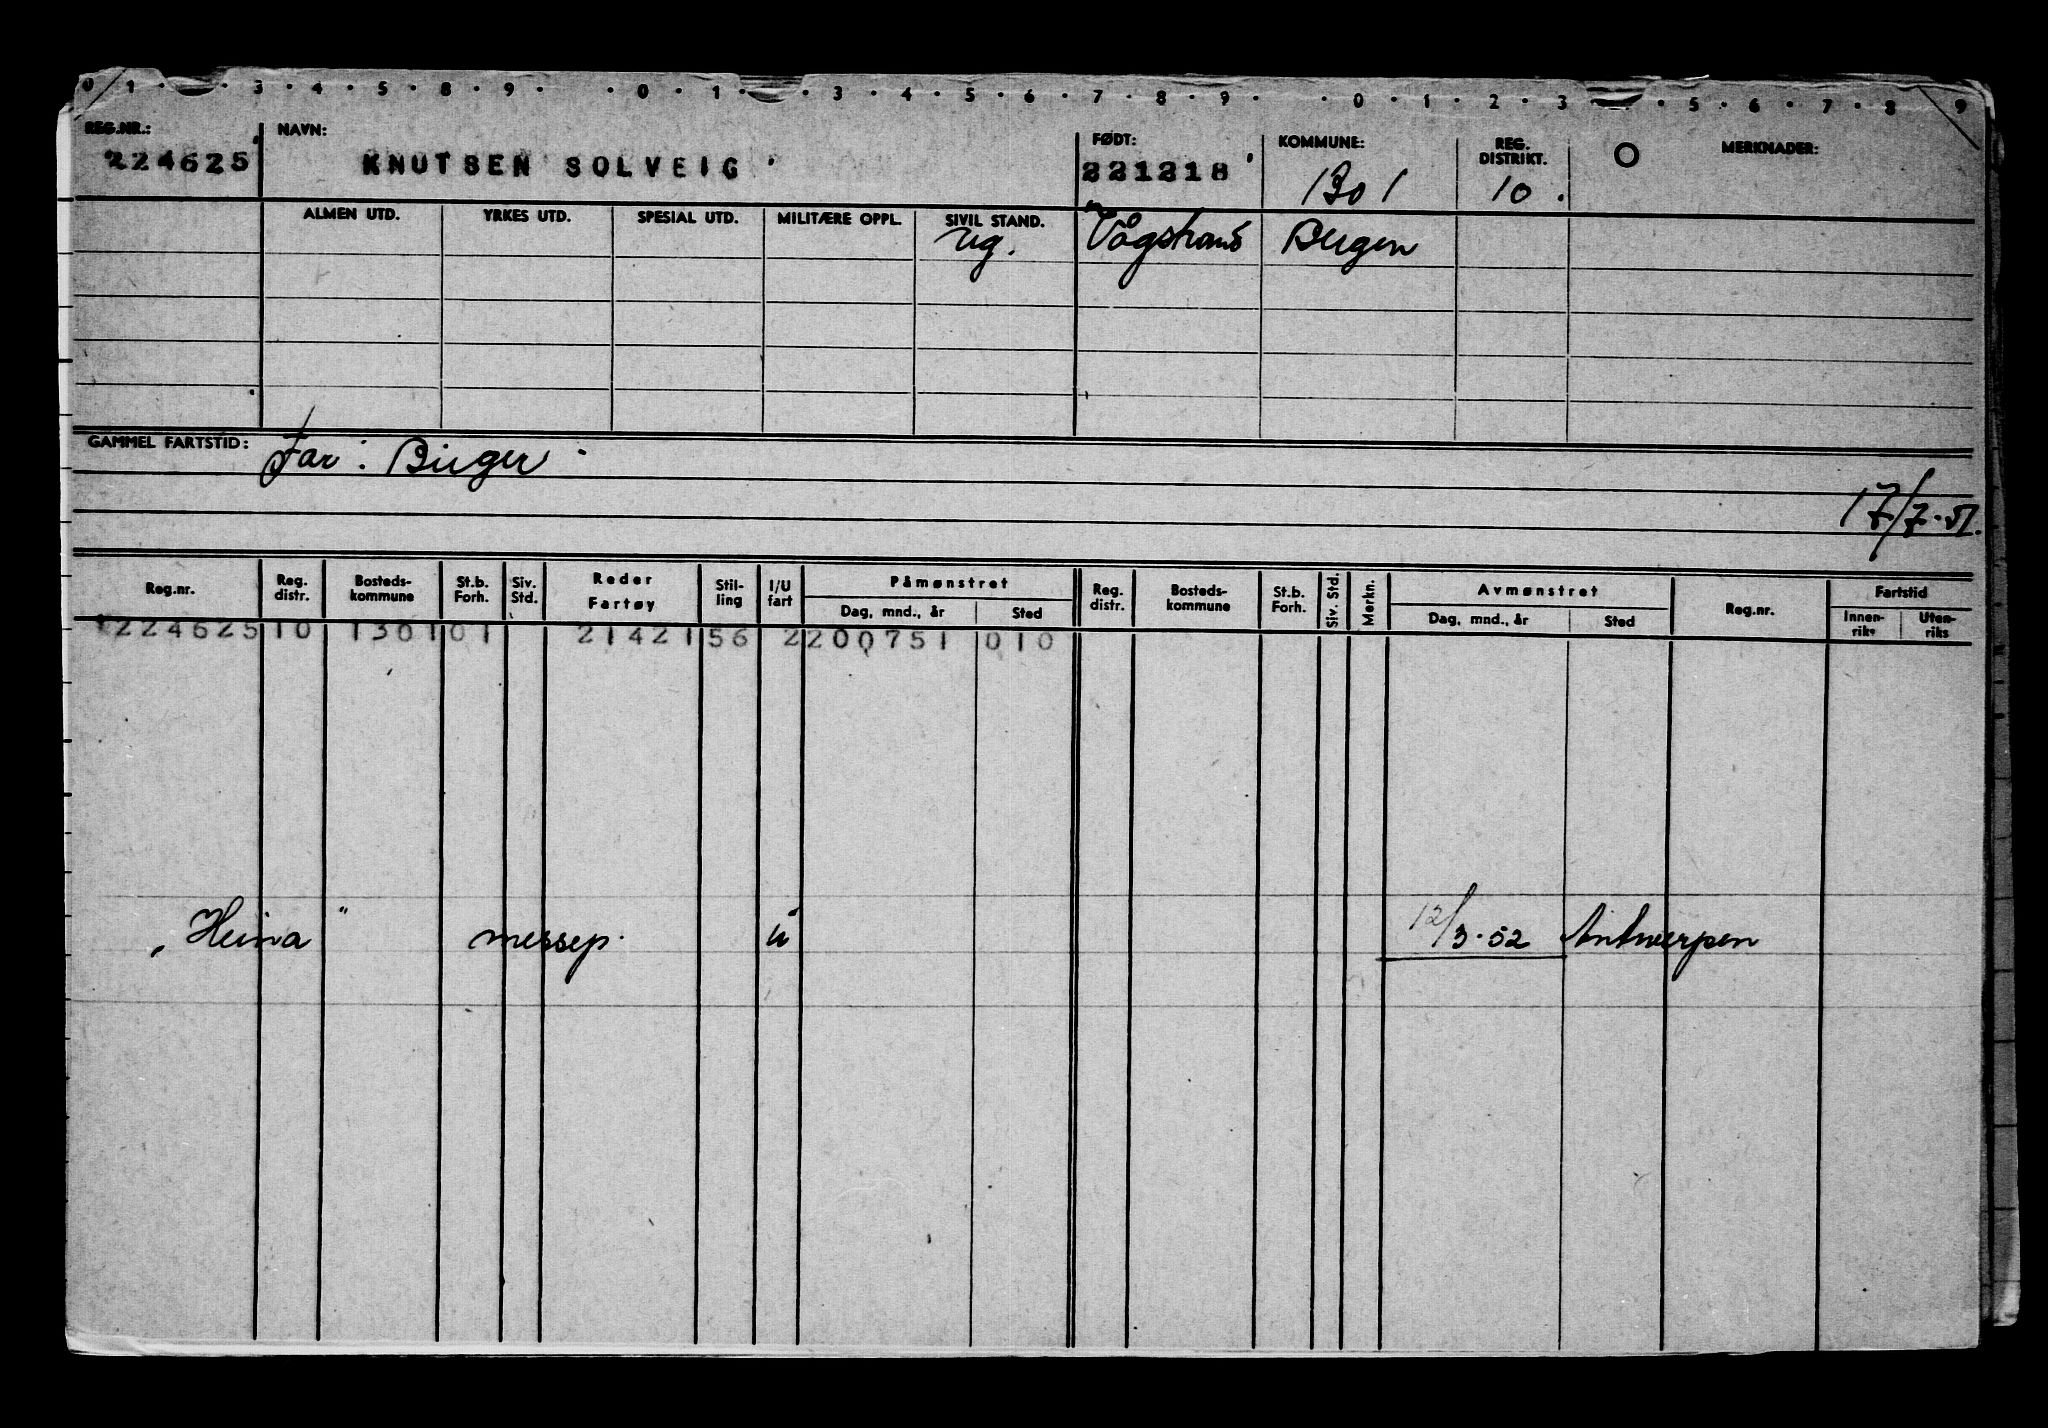 0 1 · 3 · 4 · 5 · 8 · 9 · · 0 · 1 · · 3 · 4 · 5 · 6 · 7 · 8 · 9 · · 0 · 1 · 2 · 3 · 5 · 6 · 7 · 8 9
REG.NR.: NAVN: FØDT: KOMMUNE: REG. DISTRIKT. MERKNADER:
224625 KNUTSEN SOLVEIG 221218 1301 10.
ALMEN UTD. YRKES UTD. SPESIAL UTD. MILITÆRE OPPL. SIVIL STAND.
ug. Vågstrand Bergen
GAMMEL FARTSTID: Far: Birger
17/7-51.
Reg.nr. Reg. distr. Bosteds-kommune St.b. Forh. Siv. Std. Reder Fartøy Stil-ling I/U fart Påmønstret Reg. distr. Bosteds-kommune St.b. Forh. Siv. Std. Merkn. Avmønstret Reg.nr. Fartstid
Dag, mnd., år Sted Dag, mnd., år Sted Innen-riks Uten-riks
224625 10 1301 01 21421 56 2 200751 010
"Heina" messep. u 12/3-52 Antwerpen